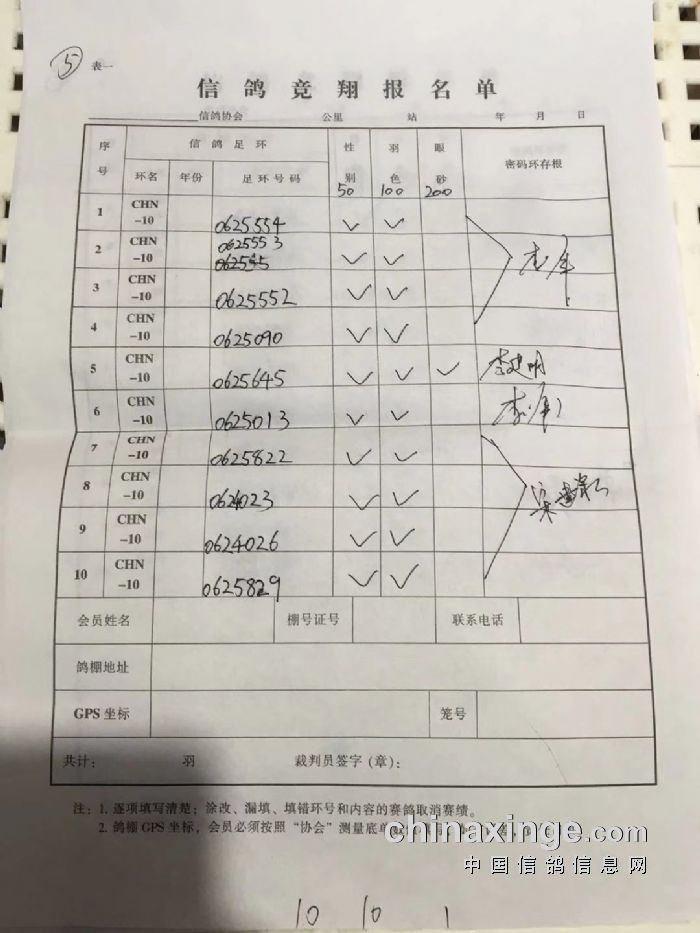 5 表一
信鸽竞翔报名单
信鸽协会 公里 站 年 月 日
序号 信鸽足环 性别 羽色 眼砂 密码环存根
环名 年份 足环号码 50 100 200
1 CHN-10 0625554 ✓ ✓
2 CHN-10 0625553 ✓ ✓
3 CHN-10 0625552 ✓ ✓
4 CHN-10 0625090 ✓ ✓
5 CHN-10 0625645 ✓ ✓ ✓ 李建明
6 CHN-10 0625013 ✓ ✓
7 CHN-10 0625822 ✓ ✓
8 CHN-10 0624023 ✓ ✓
9 CHN-10 0624026 ✓ ✓
10 CHN-10 0625829 ✓ ✓
会员姓名 棚号证号 联系电话
鸽棚地址
GPS 坐标 笼号
共计: 羽 裁判员签字(章):
注:1. 逐项填写清楚;涂改、漏填、填错环号和内容的赛鸽取消赛绩。
2. 鸽棚 GPS 坐标,会员必须按照“协会”测量底单
chinaxinge.com
中国信鸽信息网
10 10 1